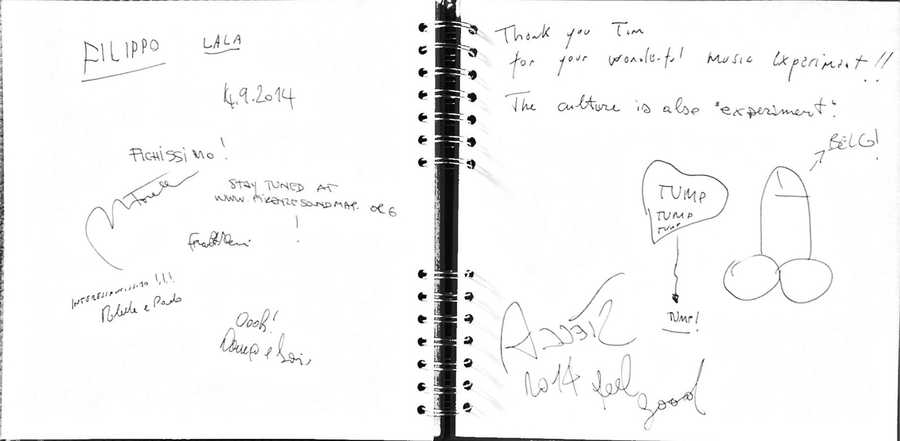 FILIPPO LALA
14.9.2014
FICHISSIMO!
STAY TUNED AT
WWW.FIRENZESOUNDMAP.ORG
!
INTERESSANTISSIMO!!!
Oooh!
Thank you Tim
for your wonderful music experiment!!
The culture is also "experiment".
BELGI!
TUMP
TUMP
TUMP
TUMP!
2014 feel
good